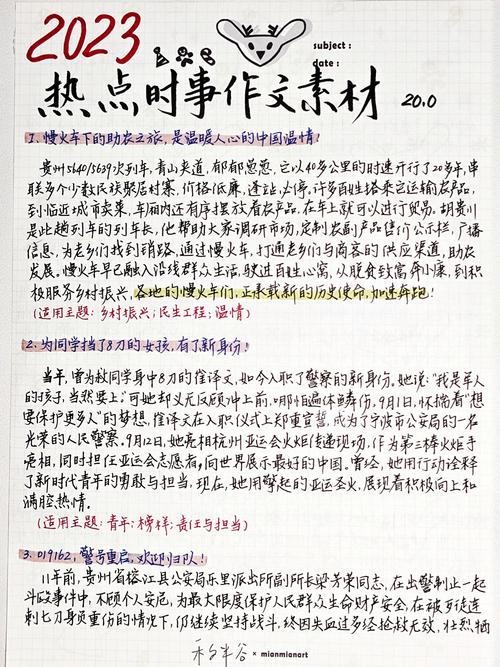 2023
subject:
date:
热点时事作文素材 20.0
1. 慢火车下的助农之旅,是温暖人心的中国温情!
贵州5640/5639次列车,青山夹道,郁郁葱葱,它以40多公里的时速开行了20多年,串
联多个少数民族聚居村寨,价格低廉,逢站必停,许多百姓搭乘它运输农产品,
到临近城市卖菜,车厢内还有序摆放着农产品,在车上就可以进行贸易。胡贵川
是此趟列车的列车长,他帮助大家调研市场,定制农副产品售价公示栏,广播
信息,为老乡们找到销路,通过慢火车,打通老乡们与商客的供应渠道,助农
发展。慢火车早已融入沿线群众生活,驶过百姓心窝,从脱贫致富奔小康,到积
极服务乡村振兴,各地的慢火车们,正承载新的历史使命,加速奔跑!
(适用主题:乡村振兴;民生工程;温情)
2. 为同学挡了8刀的女孩,有了新身份!
当年,曾为救同学身中8刀的崔译文,如今入职了警察的新身份。她说:“我是军人
的孩子,当然要上”,可她却义无反顾冲上前,哪怕遍体鳞伤。9月1日,怀揣着“想
要保护更多人”的梦想,崔译文在入职仪式上郑重宣誓,成为了宁波市公安局的一名
光荣的人民警察。9月12日,她亮相杭州亚运会火炬传递现场,作为第三棒火炬手
亮相,同时担任亚运会志愿者,向世界展示最好的中国。曾经,她用行动诠释
了新时代青年的勇敢与担当,现在,她用擎起的亚运圣火,展现着积极向上和
满腔热情。
(适用主题:青年;榜样;责任与担当)
3. 019162,警号重启,欢迎归队!
11年前,贵州省榕江县公安局乐里派出所副所长梁芳荣同志,在出警制止一起
斗殴事件中,不顾个人安危,为最大限度保护人民群众生命财产安全,在被歹徒连
刺七刀身负重伤的情况下,仍继续坚持战斗,终因失血过多经抢救无效,壮烈牺
× mianmianart